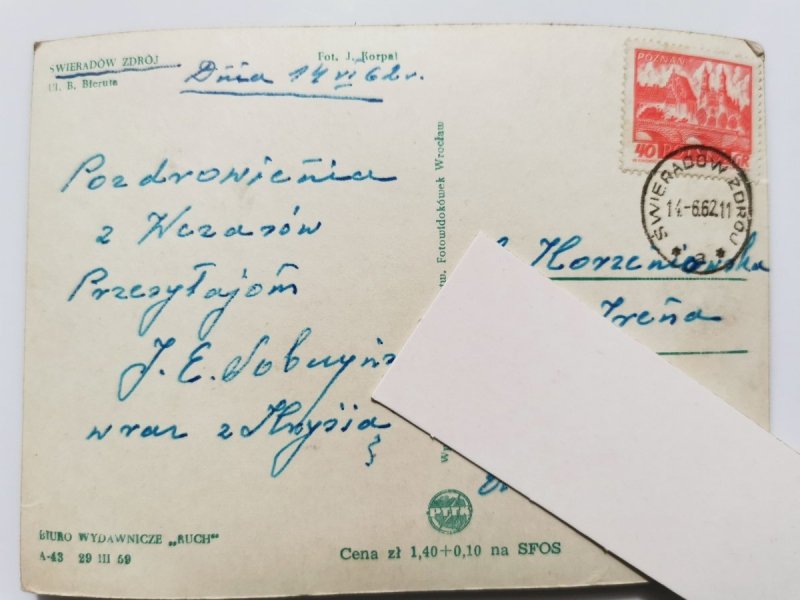 ŚWIERADÓW ZDRÓJ
Ul. B. Bieruta
Fot. J. Korpal
Dnia 14 VI 62 r.
Pozdrowienia
z Wczasów
Przesyłajom
J. E.
wraz z Krysią
POZNAŃ
40 GR
ŚWIERADÓW ZDRÓJ
14.-6.62.11
* a *
Korzeniowska
Irena
Fotowidokówek Wrocław
PTTK
BIURO WYDAWNICZE „RUCH"
A-43 29 III 59
Cena zł 1,40+0,10 na SFOS